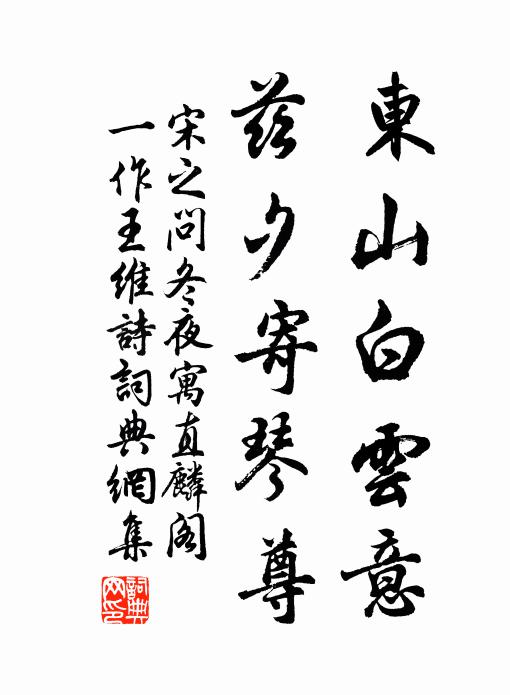 東山白雲意
茲夕寄琴尊
宋之問冬夜寓直麟閣
一作王維詩詞典網集
詞典網印